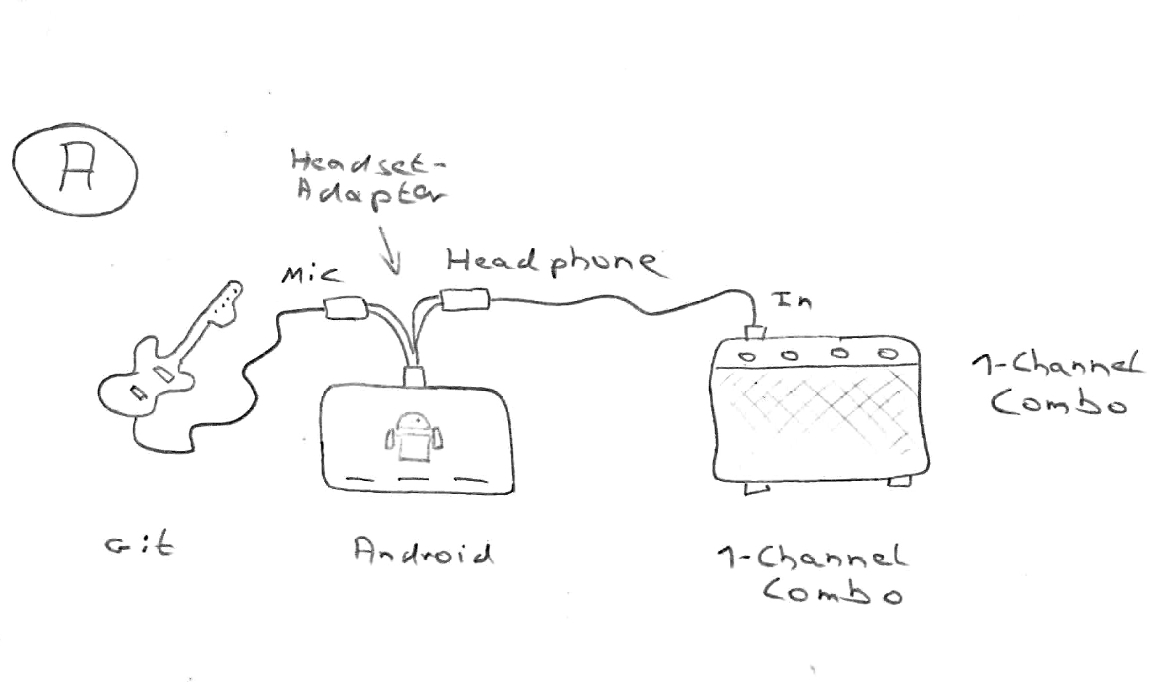 A
Headset-
Adapter
Mic
Headphone
In
1-Channel
Combo
Git
Android
1-Channel
Combo